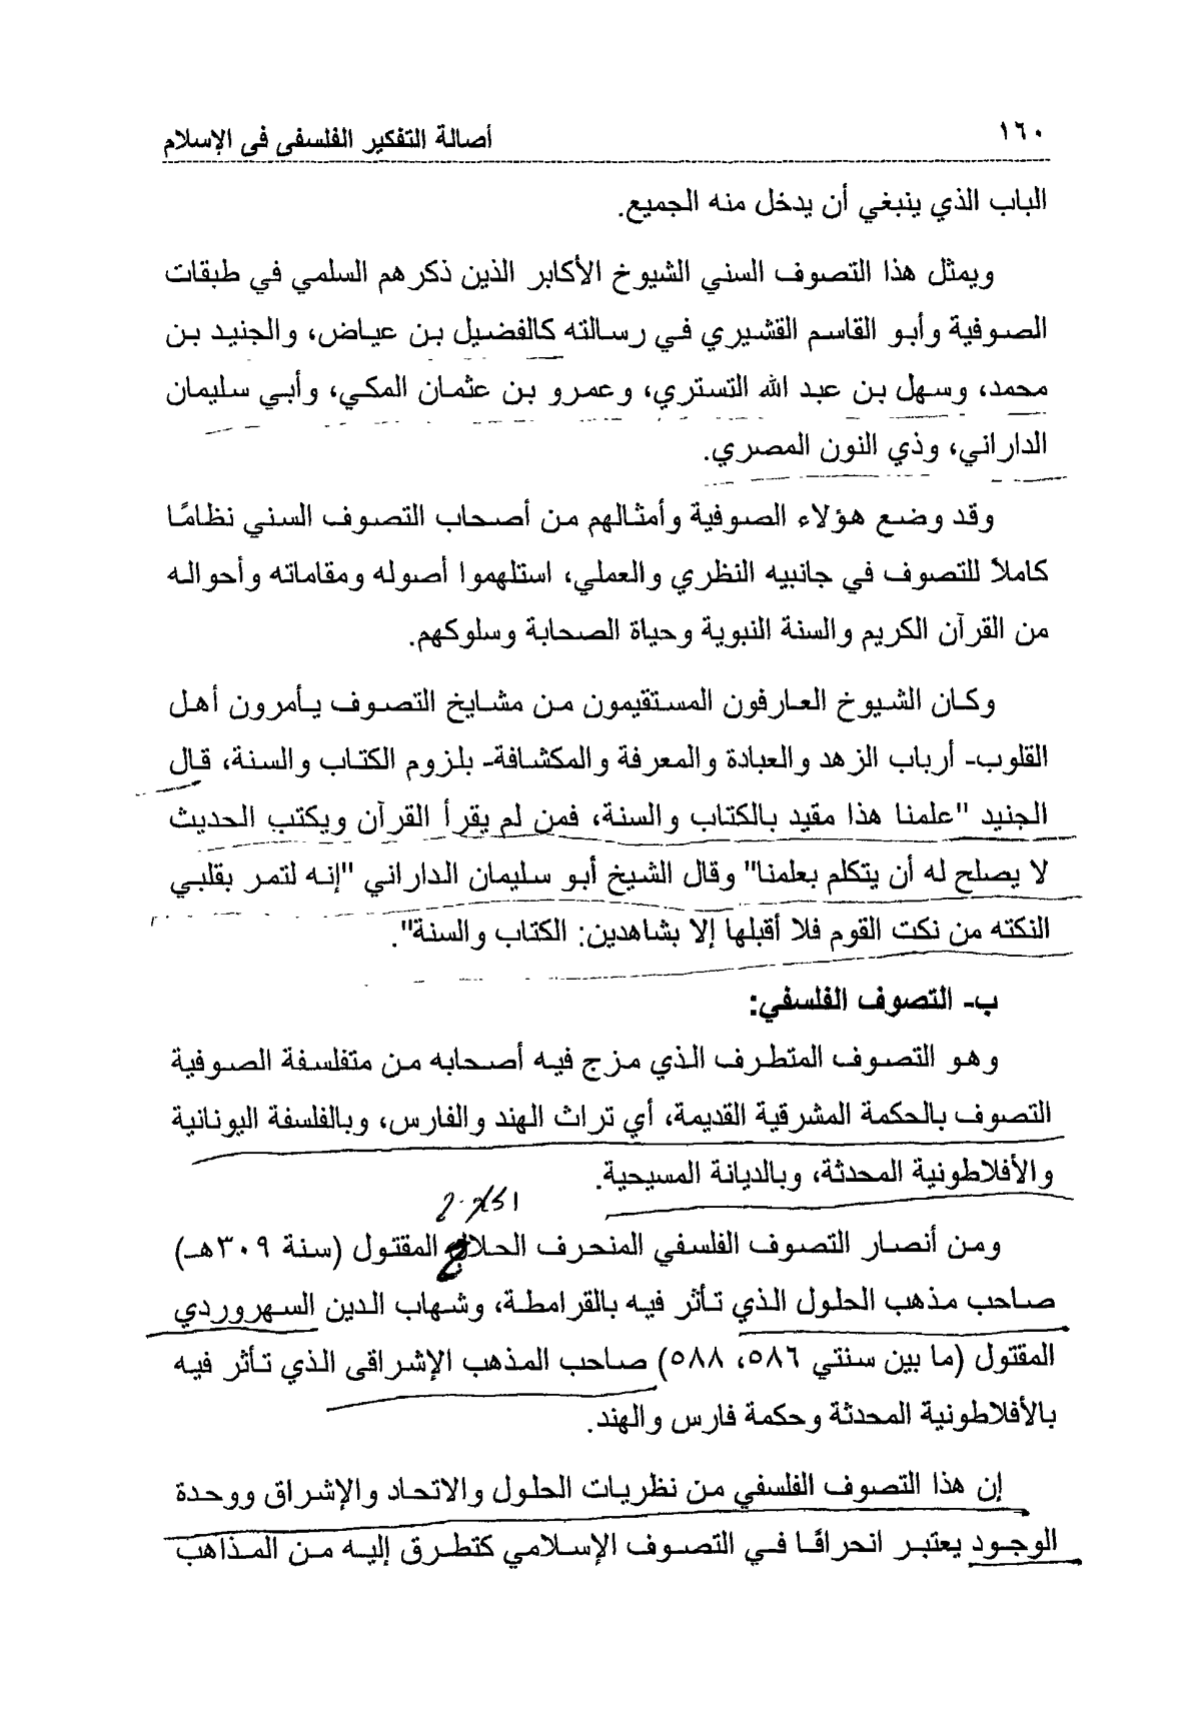 ١٦٠
أصالة التفكير الفلسفى فى الإسلام
الباب الذي ينبغي أن يدخل منه الجميع.
ويمثل هذا التصوف السني الشيوخ الأكابر الذين ذكرهم السلمي في طبقات
الصوفية وأبو القاسم القشيري في رسالته كالفضيل بن عياض، والجنيد بن
محمد، وسهل بن عبد الله التستري، وعمرو بن عثمان المكي، وأبي سليمان
الداراني، وذي النون المصري.
وقد وضع هؤلاء الصوفية وأمثالهم من أصحاب التصوف السني نظامًا
كاملاً للتصوف في جانبيه النظري والعملي، استلهموا أصوله ومقاماته وأحواله
من القرآن الكريم والسنة النبوية وحياة الصحابة وسلوكهم.
وكان الشيوخ العارفون المستقيمون من مشايخ التصوف يأمرون أهل
القلوب- أرباب الزهد والعبادة والمعرفة والمكشافة- بلزوم الكتاب والسنة، قال
الجنيد "علمنا هذا مقيد بالكتاب والسنة، فمن لم يقرأ القرآن ويكتب الحديث
لا يصلح له أن يتكلم بعلمنا" وقال الشيخ أبو سليمان الداراني "إنه لتمر بقلبي
النكته من نكت القوم فلا أقبلها إلا بشاهدين: الكتاب والسنة".
ب- التصوف الفلسفي:
وهو التصوف المتطرف الذي مزج فيه أصحابه من متفلسفة الصوفية
التصوف بالحكمة المشرقية القديمة، أي تراث الهند والفارس، وبالفلسفة اليونانية
والأفلاطونية المحدثة، وبالديانة المسيحية.
ومن أنصار التصوف الفلسفي المنحرف الحلاج المقتول (سنة ٣٠٩هـ)
صاحب مذهب الحلول الذي تأثر فيه بالقرامطة، وشهاب الدين السهروردي
المقتول (ما بين سنتي ٥٨٦، ٥٨٨) صاحب المذهب الإشراقى الذي تأثر فيه
بالأفلاطونية المحدثة وحكمة فارس والهند.
إن هذا التصوف الفلسفي من نظريات الحلول والاتحاد والإشراق ووحدة
الوجود يعتبر انحرافًا في التصوف الإسلامي كتطرق إليه من المذاهب